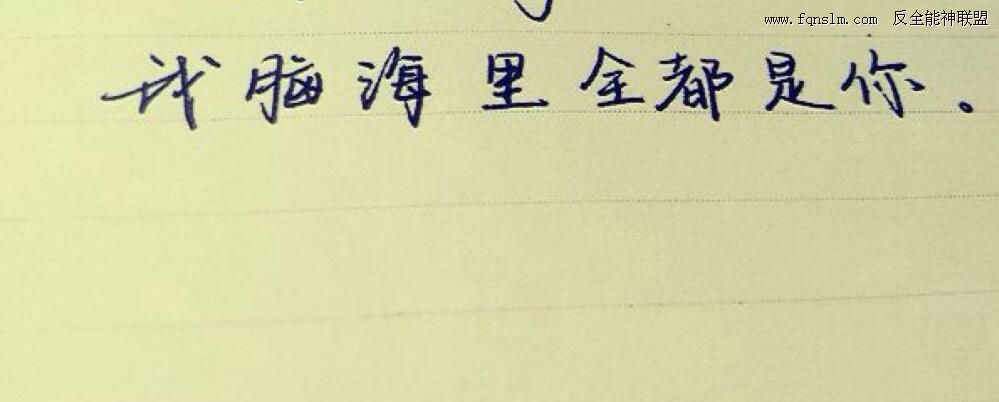 www.fqnslm.com 反全能神联盟
我脑海里全都是你.